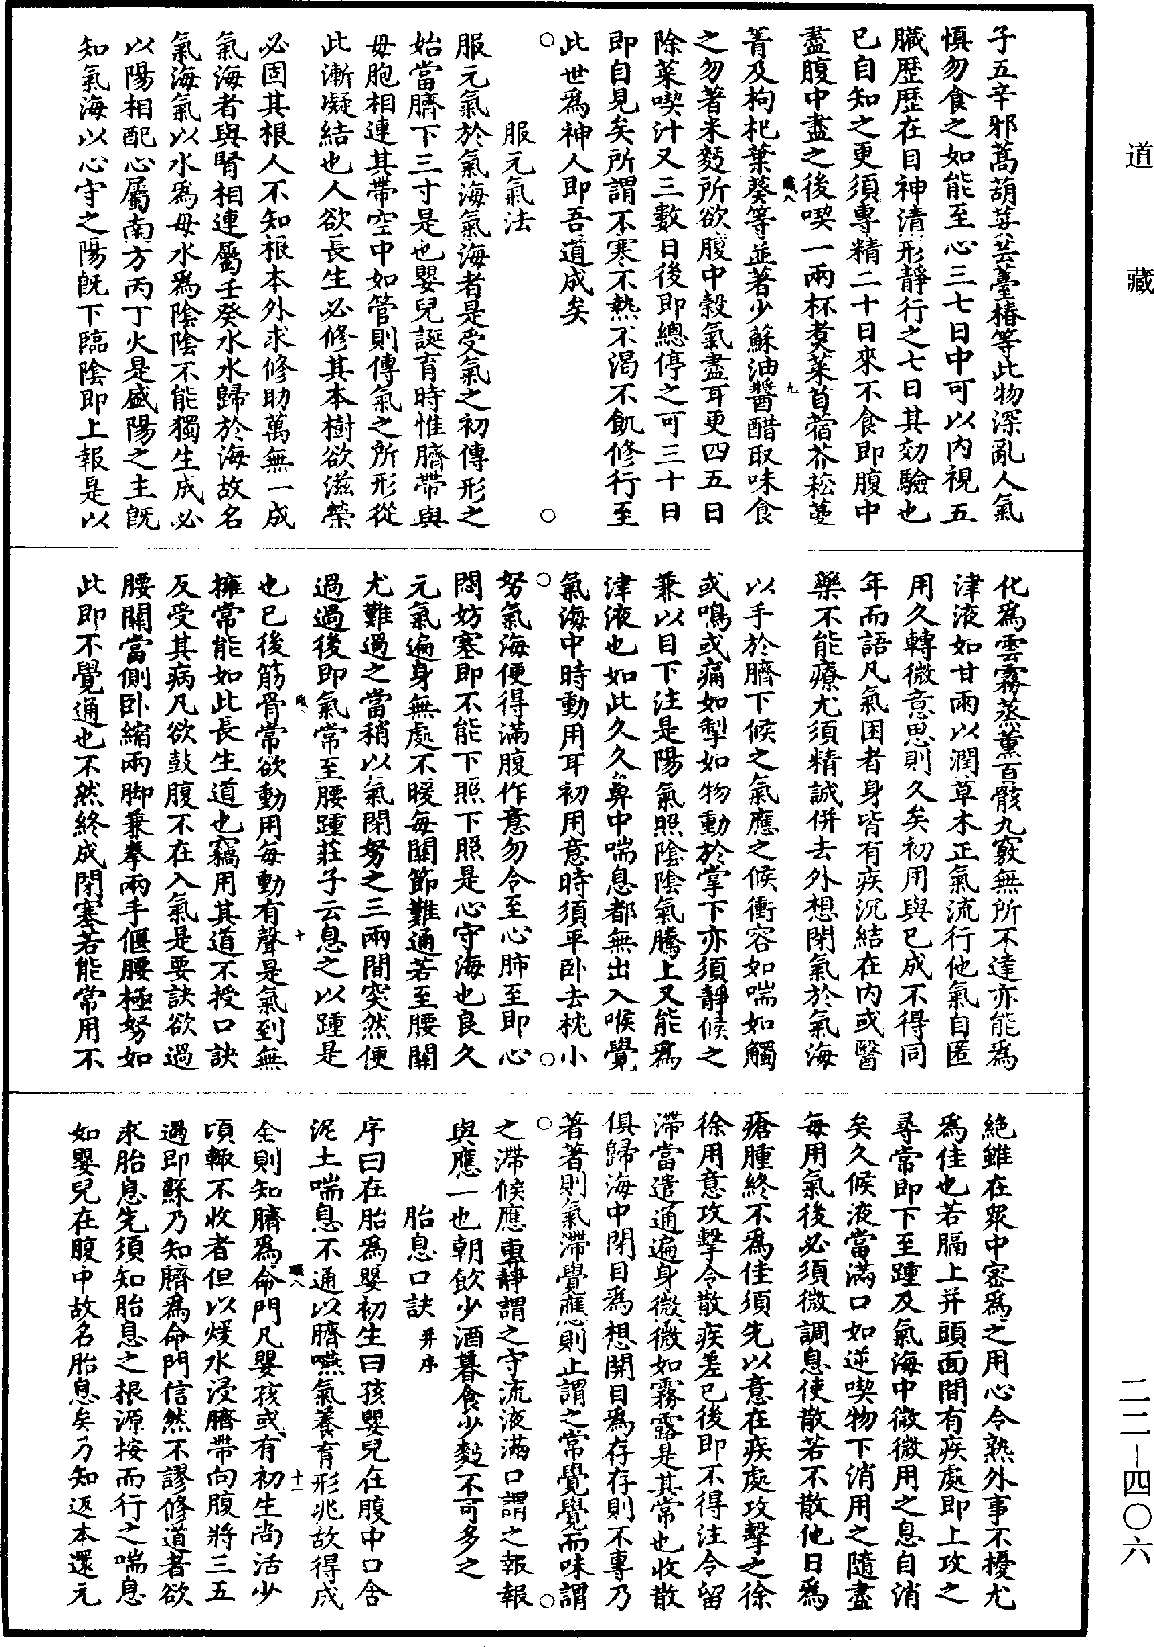 道藏
子五辛邪蒿葫荽芸薹椿等此物深亂人氣
慎勿食之如能至心三七日中可以内視五
臟歷歷在目神清形靜行之七日其効驗也
已自知之更須專精二十日來不食即腹中
盡腹中盡之後喫一兩杯煑菜苜蓿芥菘蔓
菁及枸杞葉葵等並著少蘇油醬醋取味食
之勿著米麪所欲腹中穀氣盡耳更四五日
除菜喫汁又三數日後即總停之可三十日
即自見矣所謂不寒不熱不渴不飢修行至
此世爲神人即吾道成矣
服元氣法
服元氣於氣海氣海者是受氣之初傳形之
始當臍下三寸是也嬰兒誕育時惟臍帶與
母胞相連其帶空中如管則傳氣之所形從
此漸凝結也人欲長生必修其本樹欲滋榮
必固其根人不知根本外求修助萬無一成
氣海者與腎相連屬壬癸水水歸於海故名
氣海氣以水爲母水爲陰陰不能獨生成必
以陽相配心屬南方丙丁火是盛陽之主既
知氣海以心守之陽既下臨陰即上報是以
化爲雲霧蒸薰百骸九竅無所不達亦能爲
津液如甘雨以潤草木正氣流行他氣自匿
用久轉微意思則久矣初用與已成不得同
年而語凡氣困者身皆有疾沉結在内或醫
藥不能療尤須精誠併去外想閉氣於氣海
以手於臍下候之氣應之候衝容如喘如觸
或鳴或痛如掣如物動於掌下亦須靜候之
兼以目下注是陽氣照陰陰氣騰上又能爲
津液也如此久久鼻中喘息都無出入喉覺
氣海中時動用耳初用意時須平卧去枕小
努氣海便得滿腹作意勿令至心肺至即心
悶妨塞即不能下照下照是心守海也良久
元氣遍身無處不暖每關節難通若至腰關
尤難過之當稍以氣閉努之三兩間突然便
過過後即氣常至腰踵莊子云息之以踵是
也已後筋骨常欲動用每動有聲是氣到無
擁常能如此長生道也竊用其道不授口訣
反受其病凡欲鼓腹不在入氣是要訣欲過
腰關當側卧縮兩脚兼拳兩手偃腰極努如
此即不覺通也不然終成閉塞若能常用不
絶雖在衆中密爲之用心令熟外事不擾尤
爲佳也若膈上并頭面間有疾處即上攻之
尋常即下至踵及氣海中微微用之息自消
矣久候液當滿口如逆喫物下消用之隨盡
每用氣後必須微調息使散若不散他日爲
瘡腫終不爲佳須先以意在疾處攻擊之徐
徐用意攻擊令散疾差已後即不得注令留
滯當遣通遍身微微如霧露是其常也收散
俱歸海中閉目爲想開目爲存存則不專乃
著著則氣滯覺應則止謂之常覺覺而味謂
之滯候應專靜謂之守流液滿口謂之報報
與應一也朝飲少酒暮食少麪不可多之
胎息口訣并序
序曰在胎爲嬰初生曰孩嬰兒在腹中口含
泥土喘息不通以臍嚥氣養育形兆故得成
全則知臍爲命門凡嬰孩或有初生尚活少
頃輒不收者但以煖水浸臍帶向腹將三五
過即蘇乃知臍爲命門信然不謬修道者欲
求胎息先須知胎息之根源按而行之喘息
如嬰兒在腹中故名胎息矣乃知返本還元
二二—四〇六